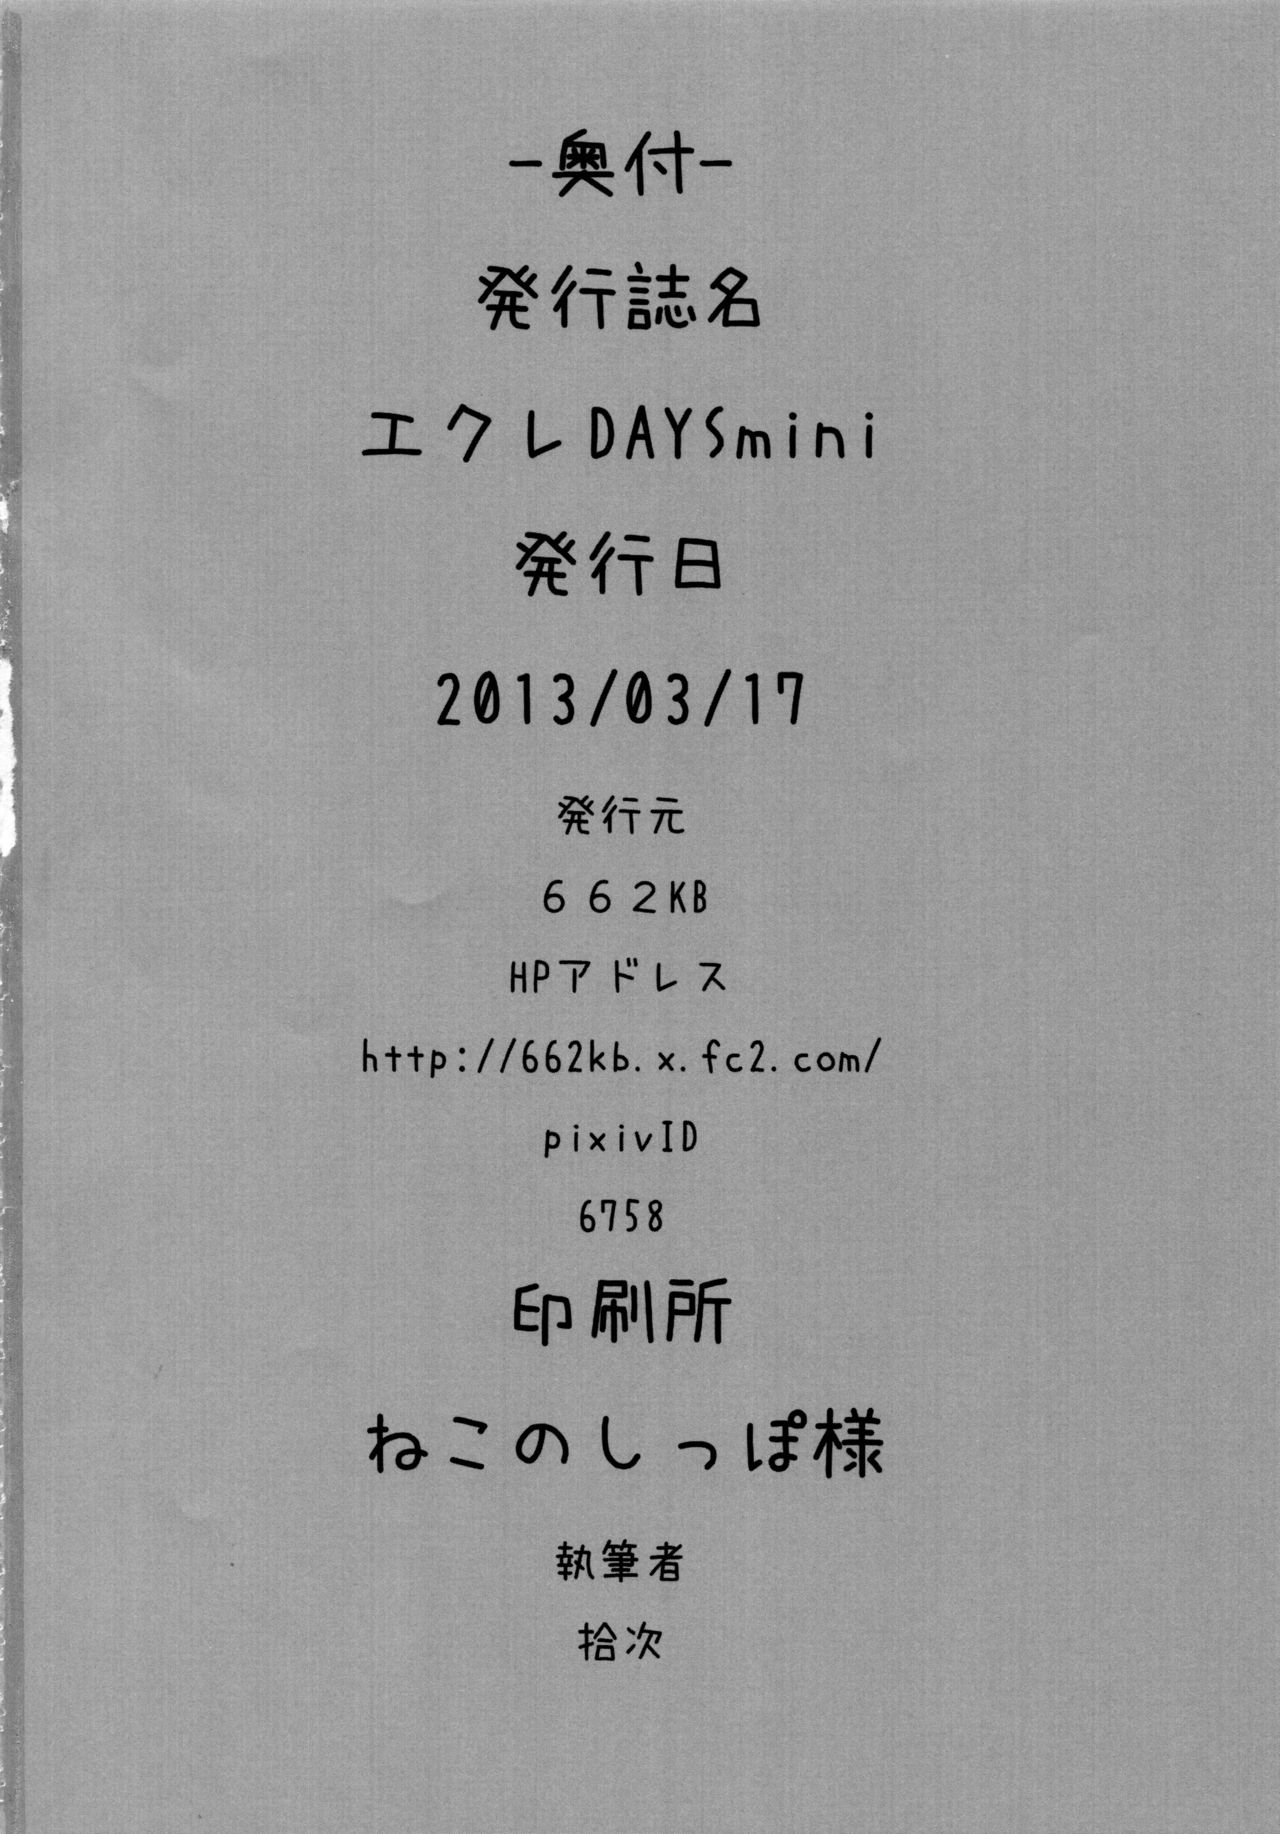 -奥付-
発行誌名
エクレDAYSmini
発行日
2013/03/17
発行元
６６２KB
HPアドレス
http://662kb.x.fc2.com/
pixivID
6758
印刷所
ねこのしっぽ様
執筆者
拾次